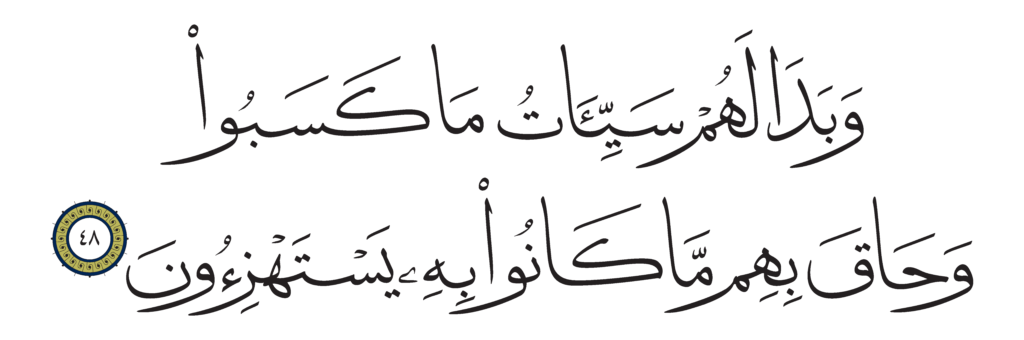 وَبَدَا لَهُمْ سَيِّـَٔاتُ مَا كَسَبُوا۟
وَحَاقَ بِهِم مَّا كَانُوا۟ بِهِۦ يَسْتَهْزِءُونَ ٤٨